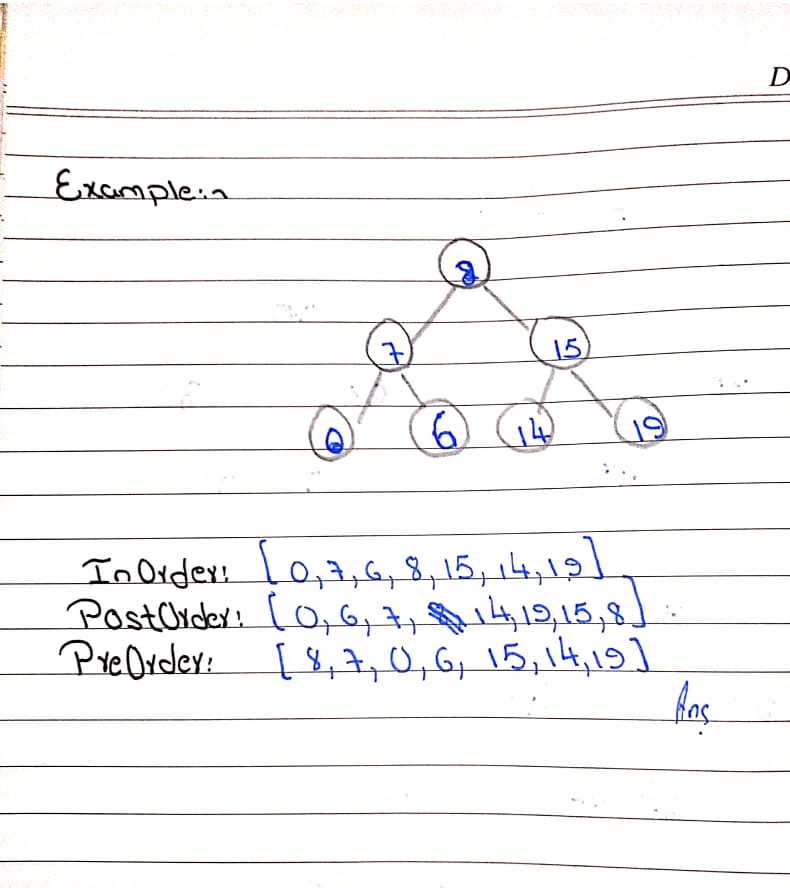 D
Example:
8
7 15
0 6 14 19
InOrder: [0,7,6,8,15,14,19]
PostOrder: [0,6,7, 14,19,15,8]
PreOrder: [8,7,0,6, 15,14,19]
Ans